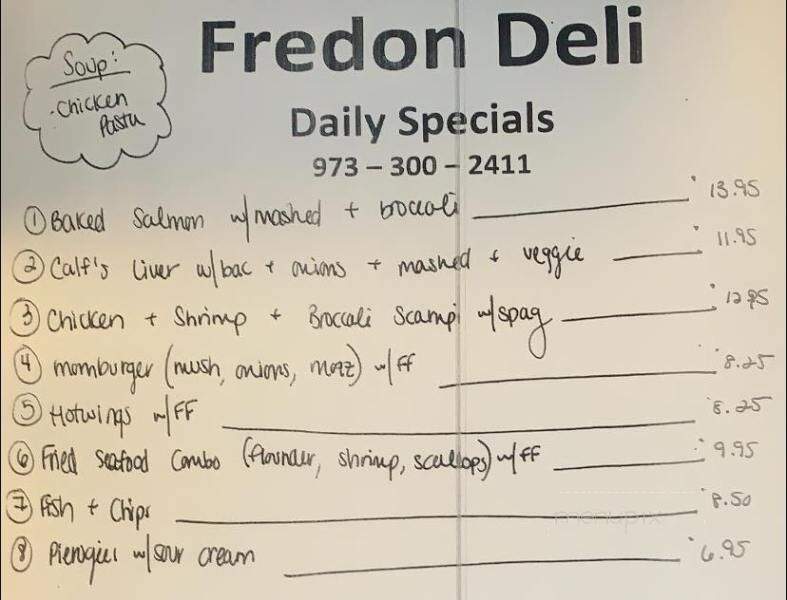 Fredon Deli
Soup:
- Chicken
Pasta
Daily Specials
973 – 300 – 2411
① Baked Salmon w/mashed + broccoli 13.95
② Calf's Liver w/bac + onions + mashed + veggie 11.95
③ Chicken + Shrimp + Broccoli Scampi w/spag 12.95
④ momburger (mush, onions, mozz) w/ff 8.25
⑤ Hotwings w/FF 8.25
⑥ Fried Seafood Combo (flounder, shrimp, scallops) w/ff 9.95
⑦ Fish + Chips 8.50
menupix
⑧ Pierogies w/sour cream 6.95